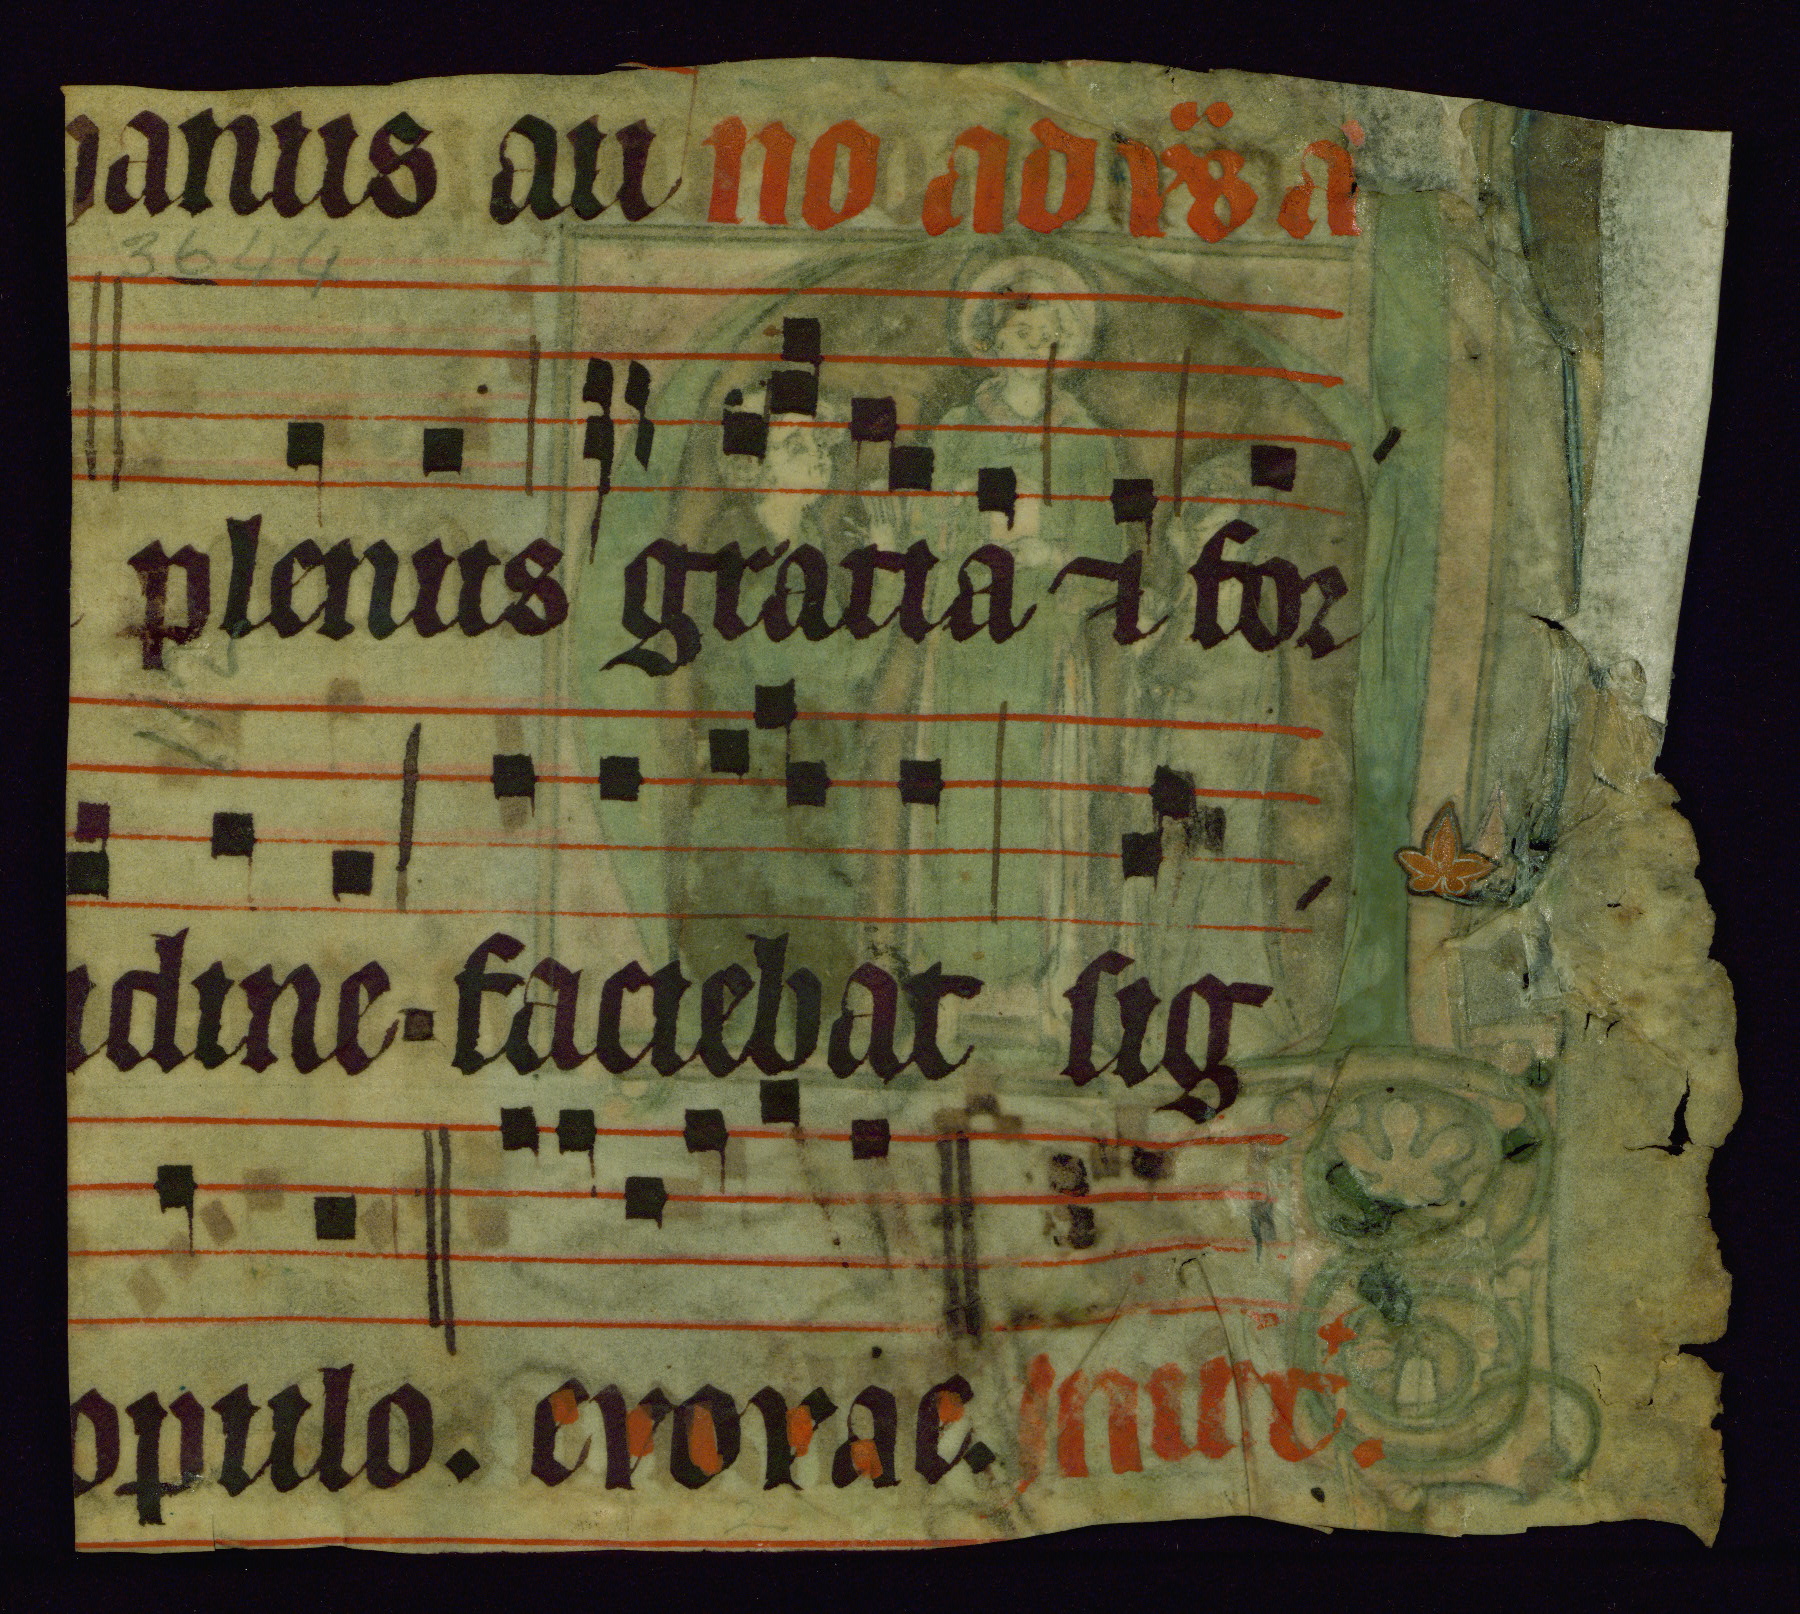 panus au no ad vṣ a
3644
plenus gratia ⁊ for
udine faciebat sig
opulo. evovae. Inuit.